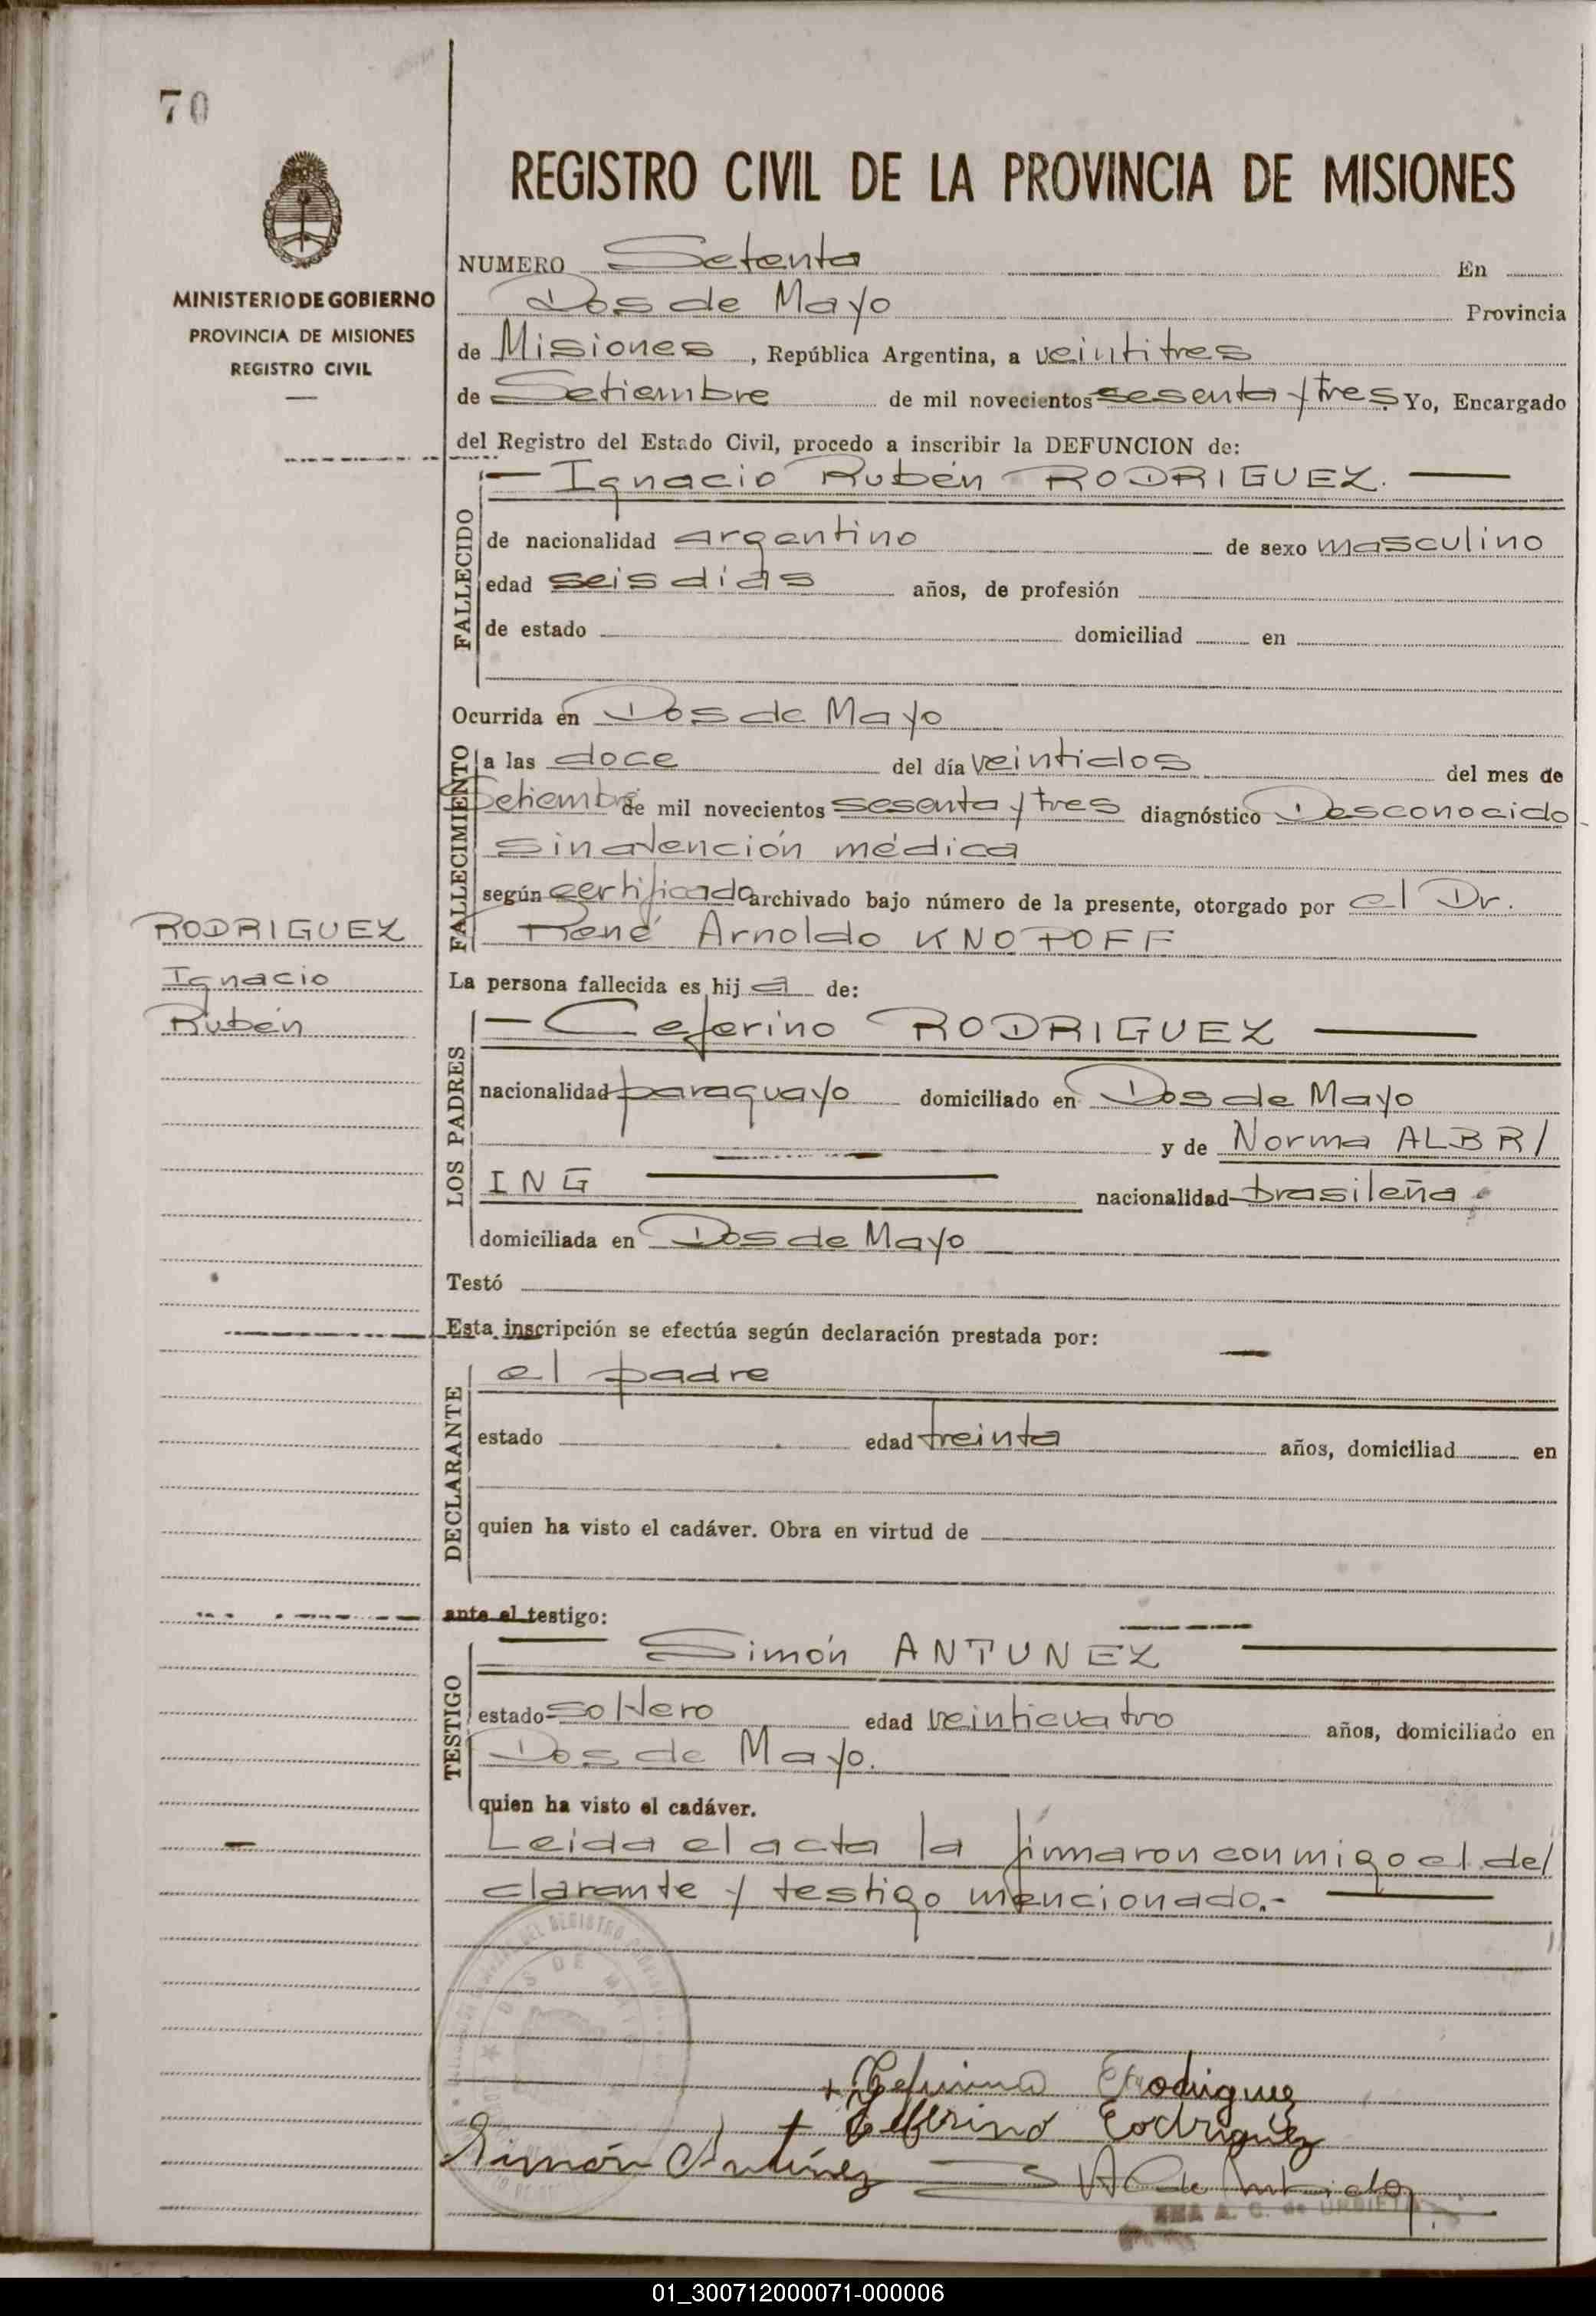 70
REGISTRO CIVIL DE LA PROVINCIA DE MISIONES
MINISTERIO DE GOBIERNO
PROVINCIA DE MISIONES
REGISTRO CIVIL
NUMERO Setenta En
Dos de Mayo Provincia
de Misiones, República Argentina, a veintitres
de Setiembre de mil novecientos sesenta y tres Yo, Encargado
del Registro del Estado Civil, procedo a inscribir la DEFUNCION de:
— Ignacio Rubén RODRIGUEZ. —
FALLECIDO
de nacionalidad argentino de sexo masculino
edad seis días años, de profesión
de estado domiciliad en
Ocurrida en Dos de Mayo
FALLECIMIENTO
a las doce del día veintidos del mes de
Setiembre de mil novecientos sesenta y tres diagnóstico Desconocido
sin atención médica
según certificado archivado bajo número de la presente, otorgado por el Dr.
René Arnoldo KNOPOFF
RODRIGUEZ
Ignacio
Rubén
La persona fallecida es hij a de:
LOS PADRES
— Ceferino RODRIGUEZ —
nacionalidad paraguayo domiciliado en Dos de Mayo
y de Norma ALBR/
ING — nacionalidad brasileña
domiciliada en Dos de Mayo
Testó
Esta inscripción se efectúa según declaración prestada por:
DECLARANTE
el padre
estado edad treinta años, domiciliad en
quien ha visto el cadáver. Obra en virtud de
ante el testigo:
TESTIGO
Simón ANTUNEZ
estado soltero edad veinticuatro años, domiciliado en
Dos de Mayo.
quien ha visto el cadáver.
Leida el acta la firmaron conmigo el de/
clarante y testigo mencionado.-
DOS DE MAYO
+ Zeferino Rodriguez
+ Zefferino Rodriguez
Simón Antúnez
A. C. de URBIETA
01_300712000071-000006